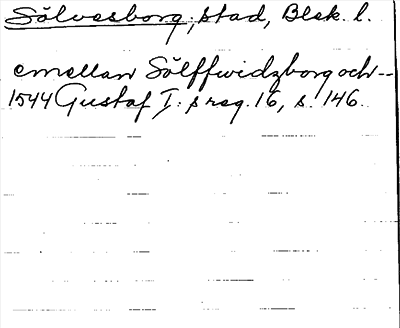 Sölvesborg, stad, Blek. l.
emellan Sölffwidzborg och --
1544 Gustaf I:s reg. 16, s. 146.